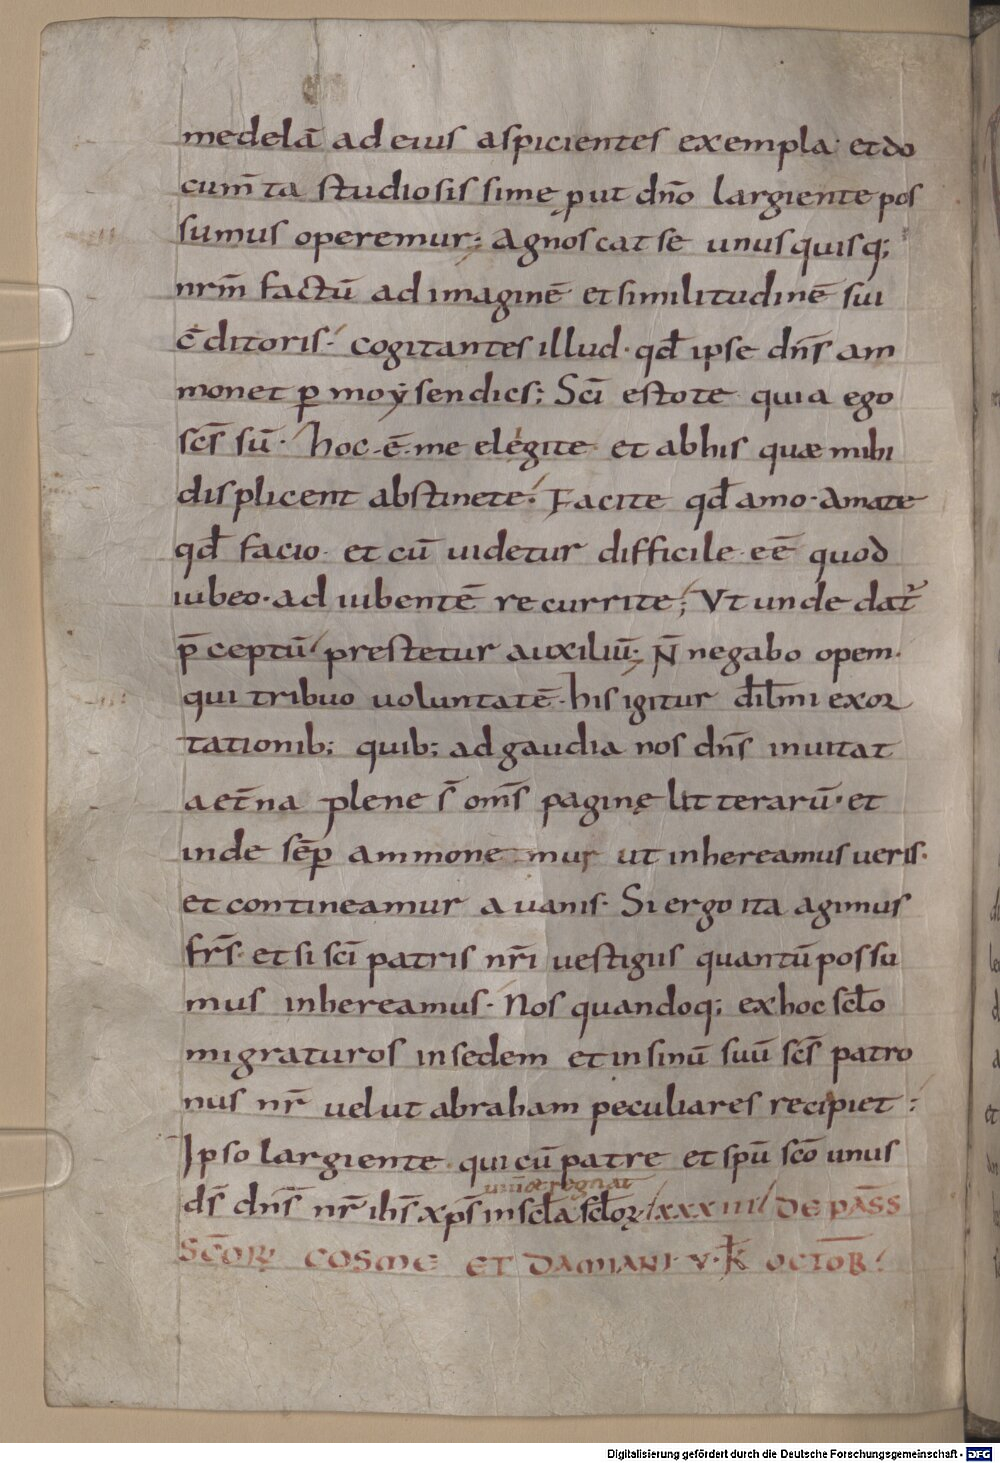 medelā ad eius aspicientes exempla· et do
cum̄ta studiosissime ꝓut dn̄o largiente pos
sumus operemur; Agnoscat se unusquisq;
nrm̄ factū ad imaginē et similitudinē sui
c̄ditoris· cogitantes illud· qđ ipse dn̄s am
monet ꝑ moẏsen dics; Sc̄i estote quia ego
sc̄s sū· hoc ·ē· me elegite et ab his quæ mihi
displicent abstinete· Facite qđ amo· Amate
qđ facio· et cū uidetur difficile eē quod
iubeo· ad iubentē recurrite; Vt unde dat᷑
p̄ceptū prestetur auxiliū; N̄ negabo opem·
qui tribuo uoluntatē· his igitur dil̄mi exor
tationib; quib; ad gaudia nos dn̄s inuitat
aet̄na plene s̄ om̄s paginę litterarū· et
inde sēꝑ ammonemur ut inhereamus ueris·
et contineamur a uanis· Si ergo ita agimus
fr̄s· et si sc̄i patris nr̄i uestigiis quantū possu
mus inhereamus· Nos quandoq; ex hoc scło
migraturos in sedem et in sinū suū sc̄s patro
nus nr̄ uelut abraham peculiares recipiet:
Ipso largiente qui cū patre et spū sc̄o unus
uiuit et regnat
ds̄ dn̄s nr̄ ih̄s xp̄s in scła scłoꝝ xxxiiii DE PASS̄
SC̄ORꝜ COSME ET DAMIANI· V· K̄ OCTOB̄R·
Digitalisierung gefördert durch die Deutsche Forschungsgemeinschaft - DFG